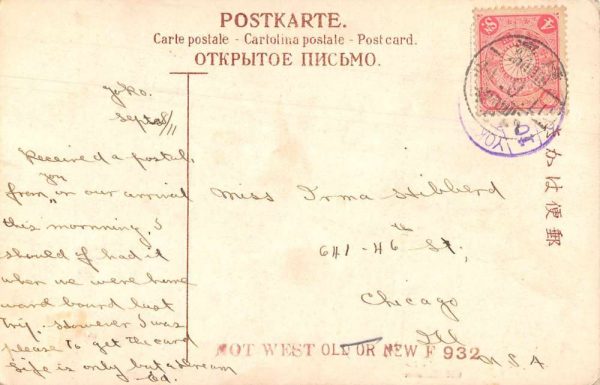 POSTKARTE.
Carte postale - Cartolina postale - Post card.
ОТКРЫТОЕ ПИСЬМО.
Yoko.
Sept 8/11
Received a postal
from you in our arrival
this mornning, I
should of had it
when we were home
ward bound last
trip. However I was
please to get the card
Life is only but a dream
Ed.
Miss Irma Hibberd
641 - 46 th St,
Chicago
Ill
U.S.A.
郵便はかき
NOT WEST OLD OR NEW F 932